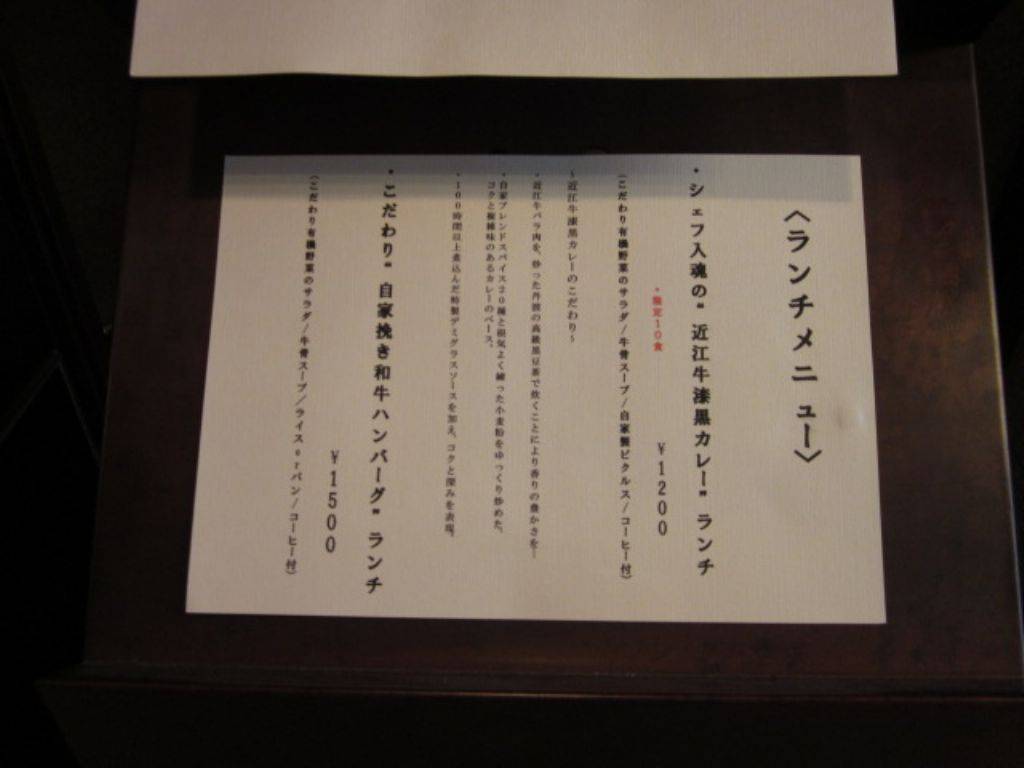 〈ランチメニュー〉
・シェフ入魂の“近江牛漆黒カレー”ランチ
・限定10食
¥1200
(こだわり有機野菜のサラダ/牛骨スープ/自家製ピクルス/コーヒー付)
~近江牛漆黒カレーのこだわり~
・近江牛バラ肉を、炒った丹波の高級黒豆茶で炊くことにより香りの豊かさを…
・自家ブレンドスパイス20種と根気よく練った小麦粉をゆっくり炒めた、
コクと複雑味のあるカレーのベース。
・100時間以上煮込んだ特製デミグラスソースを加え、コクと深みを表現。
・こだわり“自家挽き和牛ハンバーグ”ランチ
¥1500
(こだわり有機野菜のサラダ/牛骨スープ/ライスorパン/コーヒー付)